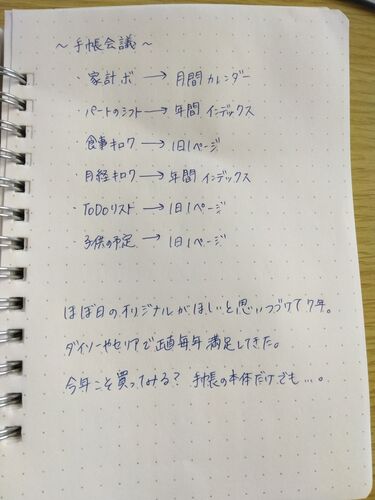 ～手帳会議～
・家計ボ → 月間カレンダー
・パートのシフト → 年間インデックス
・食事キロク → 1日1ページ
・月経キロク → 年間インデックス
・TODOリスト → 1日1ページ
・子供の予定 → 1日1ページ
ほぼ日のオリジナルがほしいと思いつづけて7年。
ダイソーやセリアで正直毎年満足してきた。
今年こそ買ってみる？ 手帳の本体だけでも…。